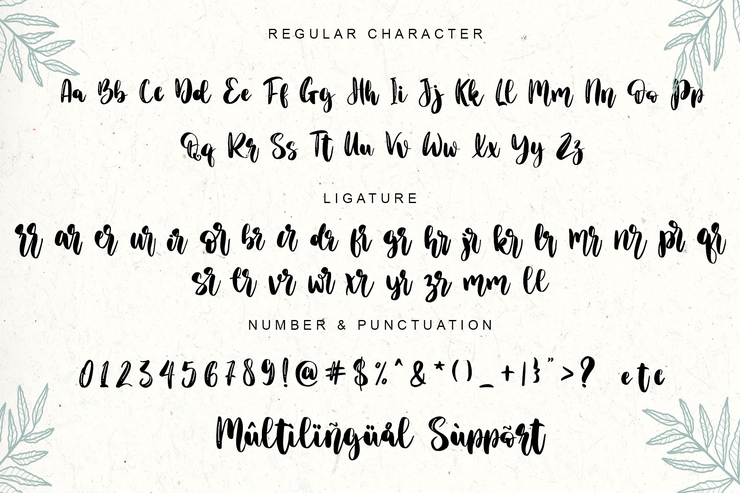 REGULAR CHARACTER
Aa Bb Cc Dd Ee Ff Gg Hh Ii Jj Kk Ll Mm Nn Oo Pp
Qq Rr Ss Tt Uu Vv Ww Xx Yy Zz
LIGATURE
rr ar er ur ir or br cr dr fr gr hr jr kr lr mr nr pr qr
sr tr vr wr xr yr zr mm ll
NUMBER & PUNCTUATION
0123456789!@#$%^&*()_+|}">? etc
Mûltilïñgüål Sùppõrt